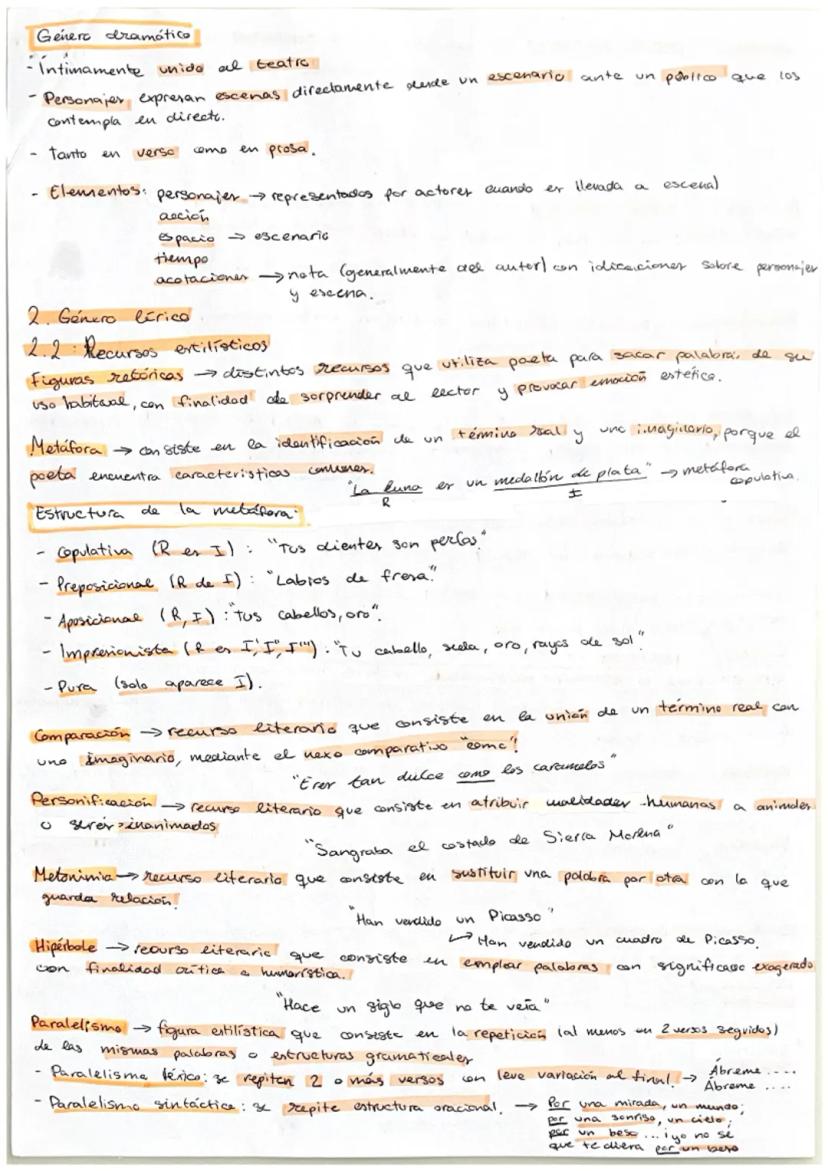 Género dramático
- Íntimamente unido al teatro
- Personajes expresan escenas directamente desde un escenario ante un público que los
contempla en directo.
- Tanto en verso como en prosa.
- Elementos: personajes → representados por actores cuando es llevada a escena)
acción
espacio → escenario
tiempo
acotaciones → nota (generalmente del autor) con idicaciones sobre personajes
y escena.
2. Género lírico
2.2: Recursos estilísticos
Figuras retóricas → distintos recursos que utiliza poeta para sacar palabras de su
uso habitual, con finalidad de sorprender al lector y provocar emoción estética.
Metáfora → consiste en la identificación de un término real y uno imaginario, porque el
poeta encuentra características comunes.
"La luna es un medallón de plata" → metáfora
copulativa.
R I
Estructura de la metáfora:
- Copulativa (R es I): "Tus dientes son perlas"
- Preposicional (R de I): "Labios de fresa."
- Aposicional (R, I): "Tus cabellos, oro".
- Impresionista (R es I', I'', I'''): "Tu cabello, seda, oro, rayos de sol"
- Pura (solo aparece I).
Comparación → recurso literario que consiste en la unión de un término real con
uno imaginario, mediante el nexo comparativo "como".
"Eres tan dulce como los caramelos"
Personificación → recurso literario que consiste en atribuir cualidades humanas a animales
o seres inanimados
"Sangraba el costado de Sierra Morena"
Metonimia → recurso literario que consiste en sustituir una palabra por otra con la que
guarda relación.
"Han vendido un Picasso"
↳ Han vendido un cuadro de Picasso.
Hipérbole → recurso literario que consiste en emplear palabras con significado exagerado
con finalidad crítica o humorística.
"Hace un siglo que no te veía"
Paralelismo → figura estilística que consiste en la repetición (al menos en 2 versos seguidos)
de las mismas palabras o estructuras gramaticales
- Paralelismo léxico: se repiten 2 o más versos con leve variación al final. → Ábreme ....
Ábreme ....
- Paralelismo sintáctico: se repite estructura oracional. → Por una mirada, un mundo;
por una sonrisa, un cielo;
por un beso ... ¡yo no sé
que te diera por un beso